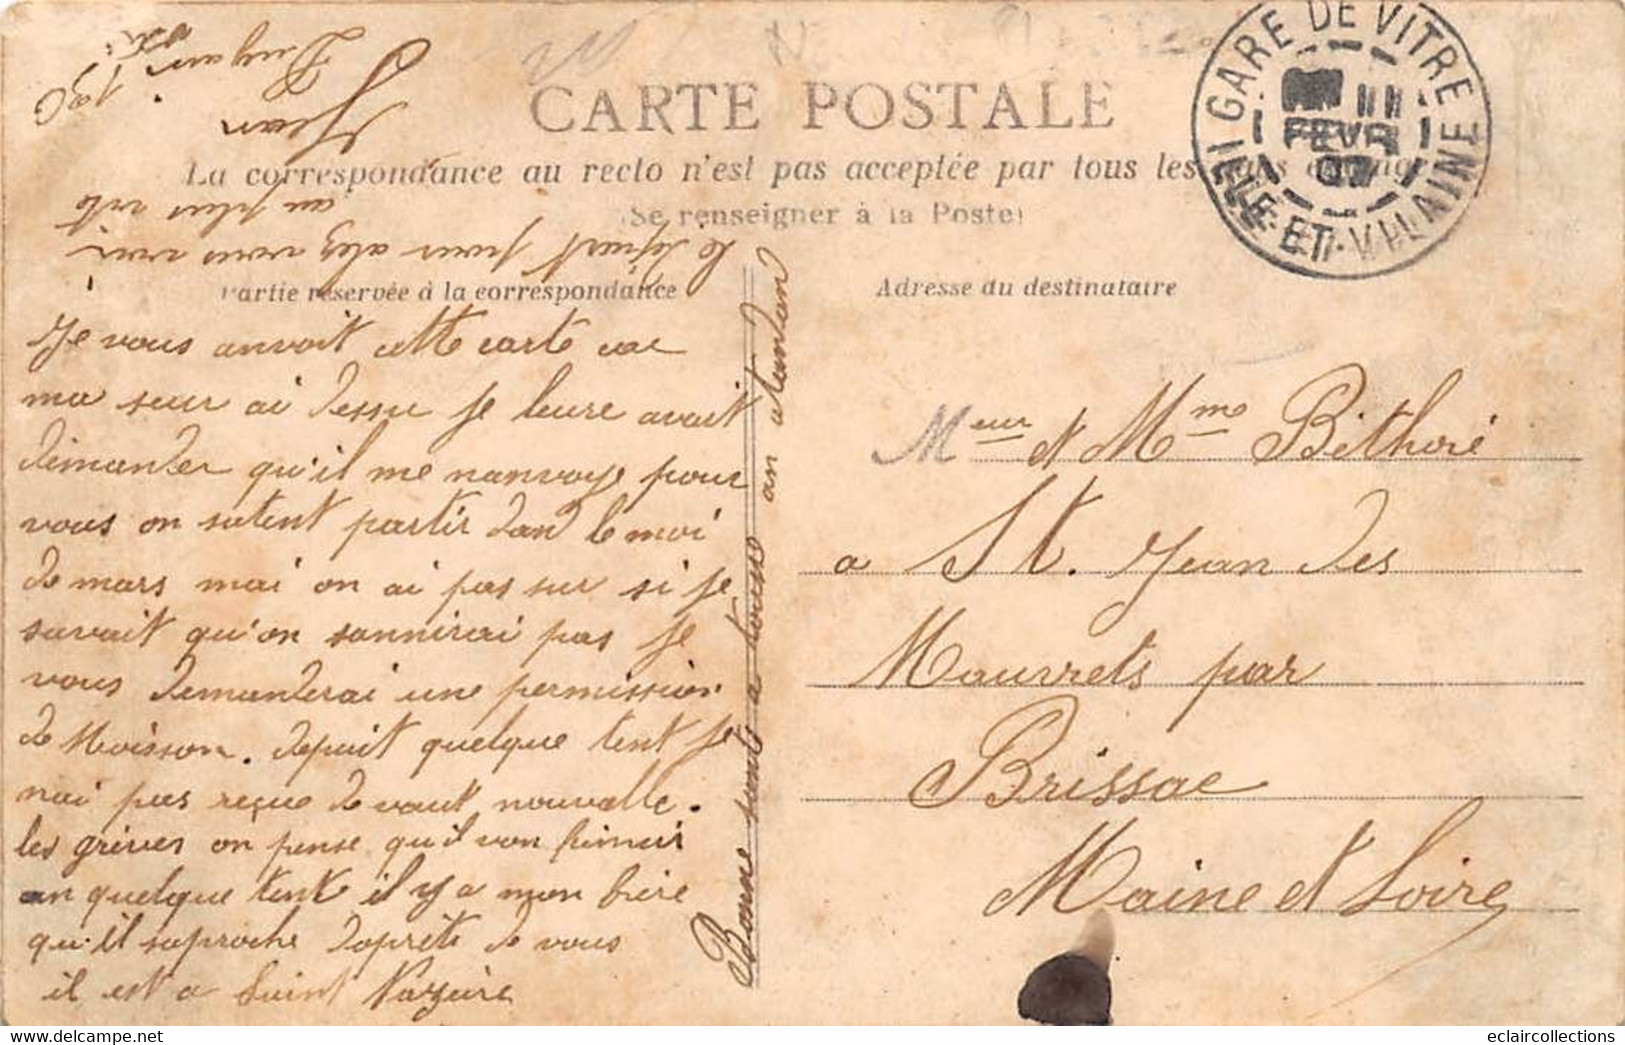 CARTE POSTALE
La correspondance au recto n'est pas acceptée par tous les
(Se renseigner à la Poste)
GARE DE VITRE
FEVR
07
ILLE-ET-VILAINE
Partie réservée à la correspondance
Adresse du destinataire
Je vous anvoit cette carte car
ma seur ai dessu je leure avait
dimander qu'il me nanvoye pour
vous on satent partir dan le moi
de mars mai on ai pas sur si je
savait qu'on sannirai pas je
vous demanderai une permission
de Moisson. depuit quelque tent je
nai pas reçue de vaut nouvelle.
les grives on pense qu'il von finir
an quelque tent il y a mon frère
qu'il saproche daprète de vous
il est a Saint Nazaire
Bonne santé a tousse an atendan
le départ pour alez vous voir
au plus vite
Jean
Meur et Mme Béthoré
a St. Jean des
Mauvrets par
Brissac
Maine et Loire
eclaircollections